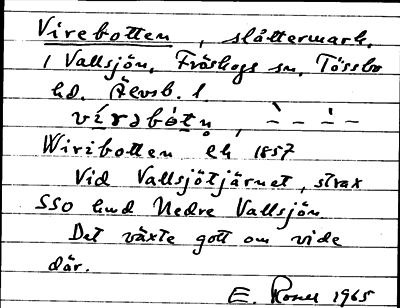 Virebotten, slåttermark,
i Vallsjön, Fröskogs sn, Tössbo
hd. Älvsb. l.
Wirebotten Ek 1857
Vid Vallsjötjärnet, strax
SSO knd Nedre Vallsjön
Det växte gott om vide
där.
E. 1965